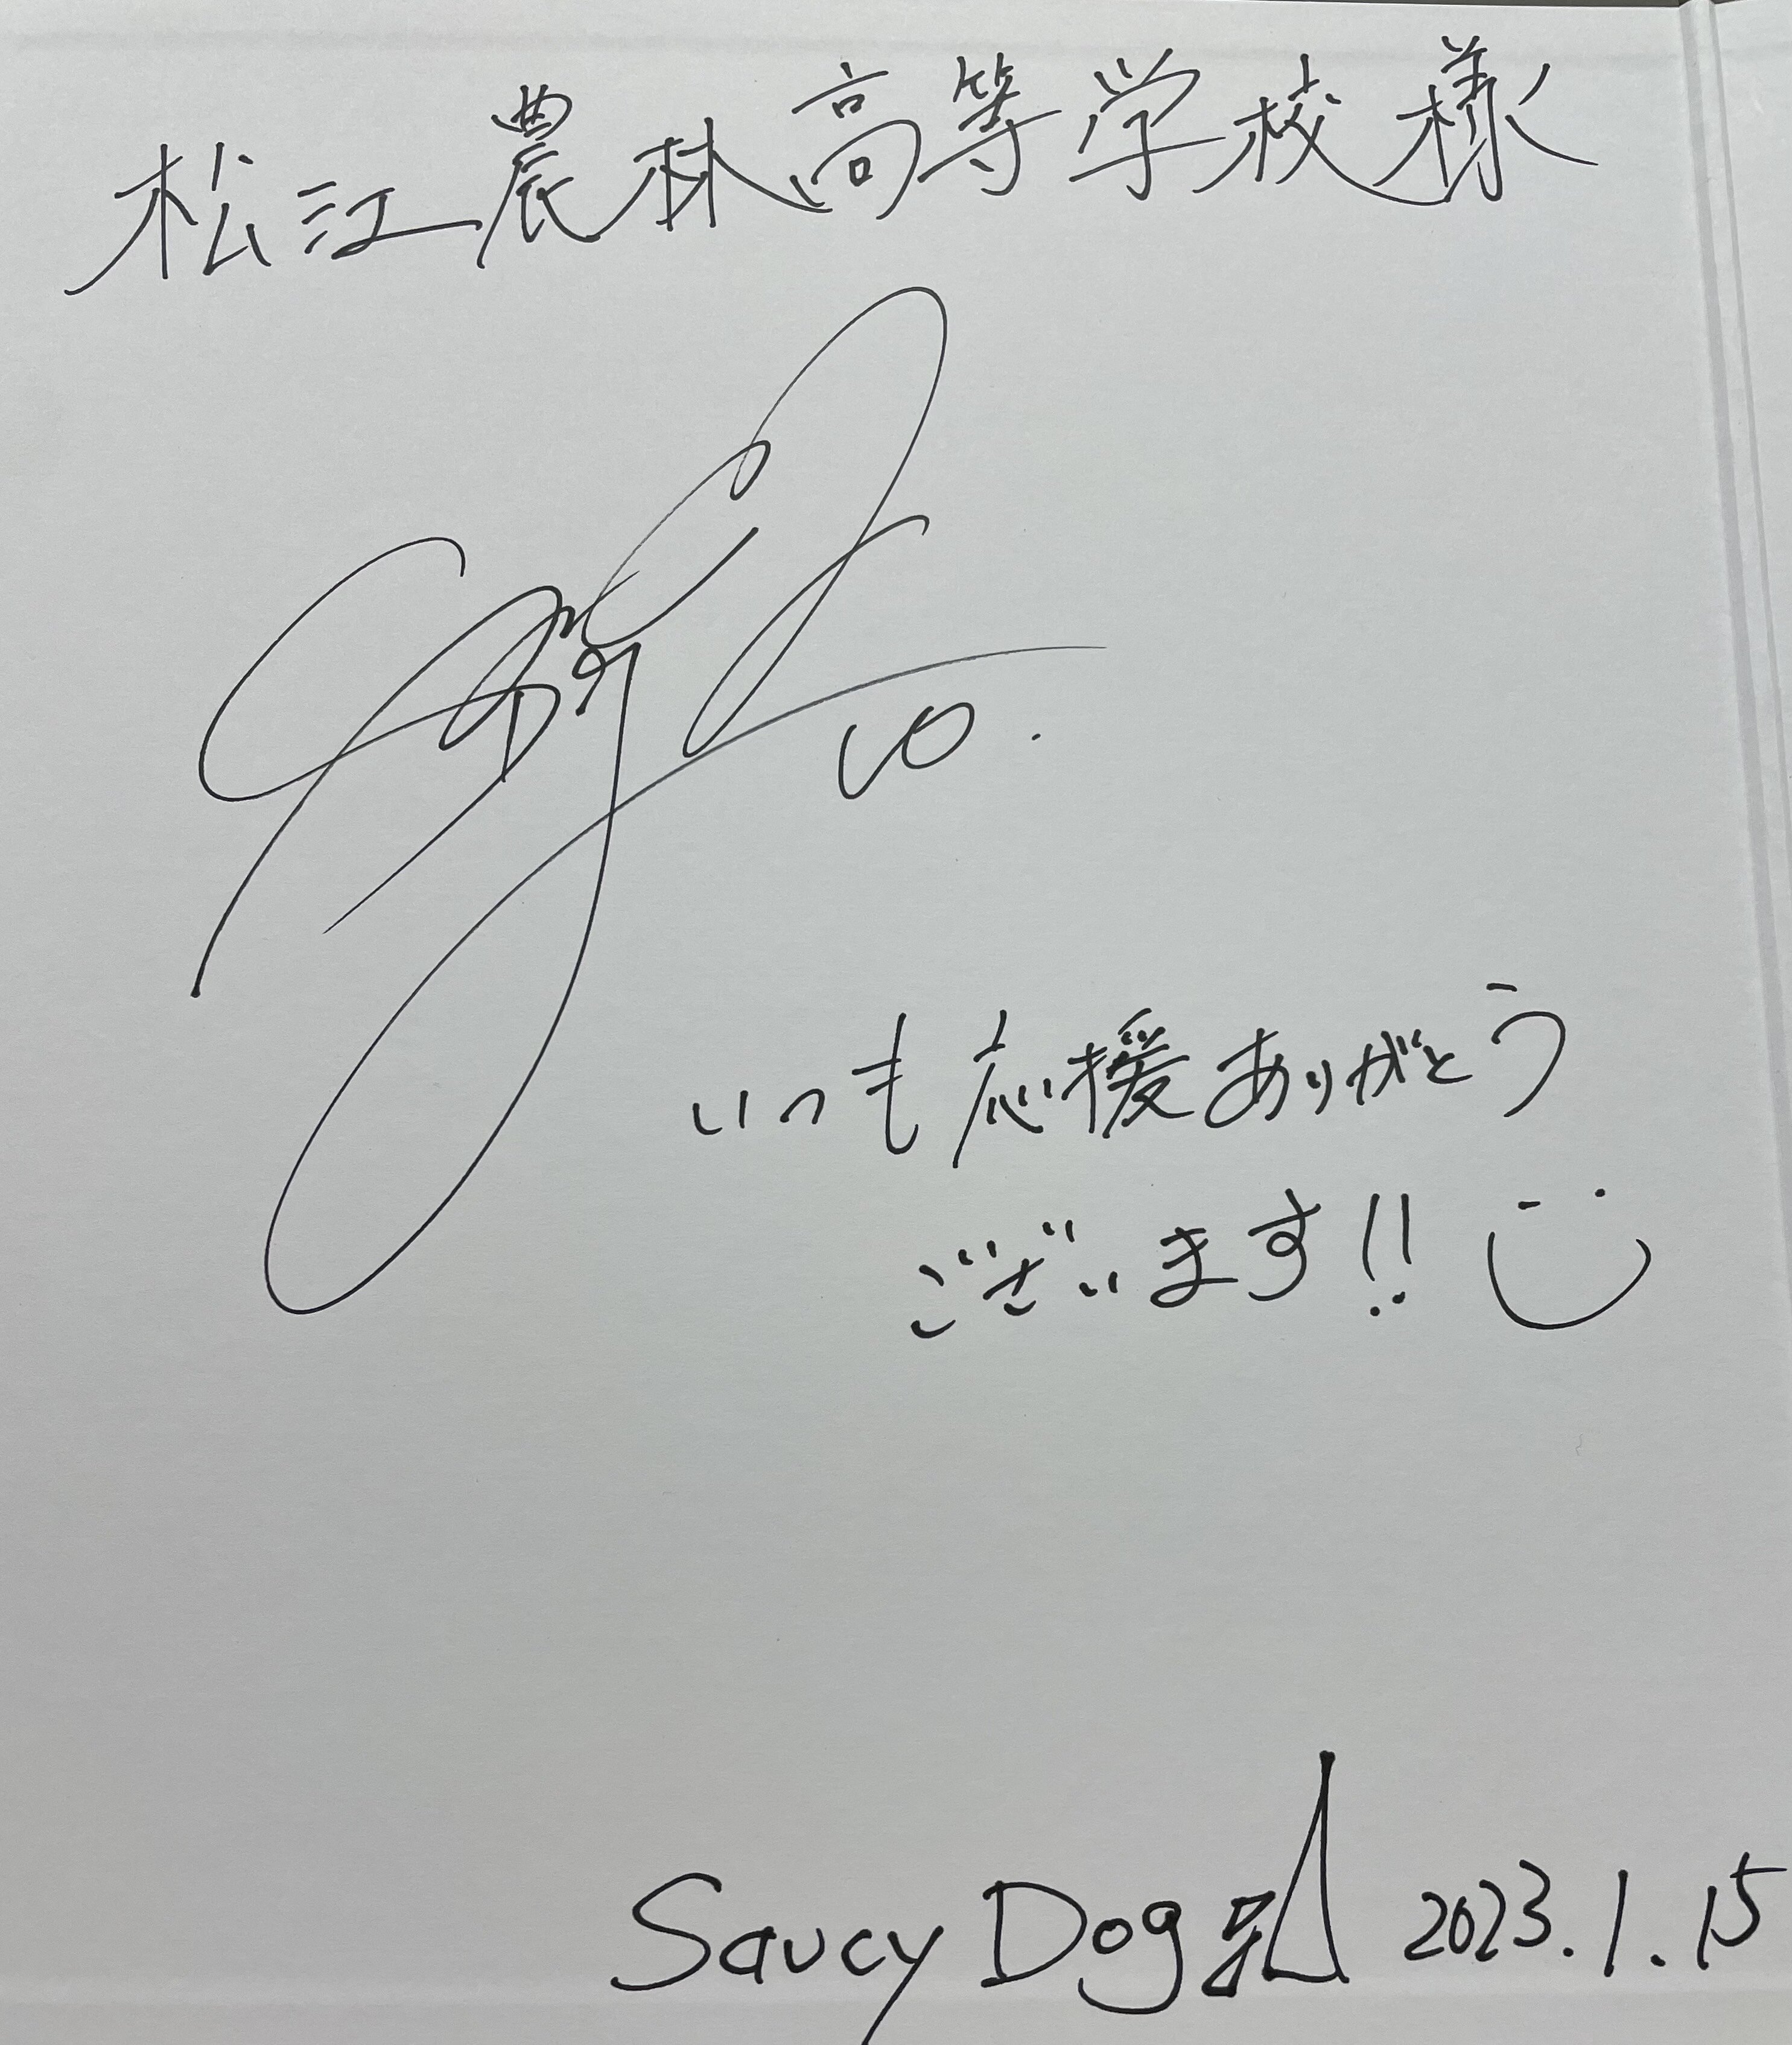 松江農林高等学校様
いつも応援ありがとう
ございます!!
Saucy Dog 2023.1.15